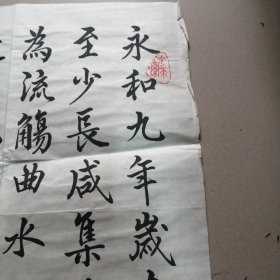 永和九年歲
至少長咸集
為流觴曲水